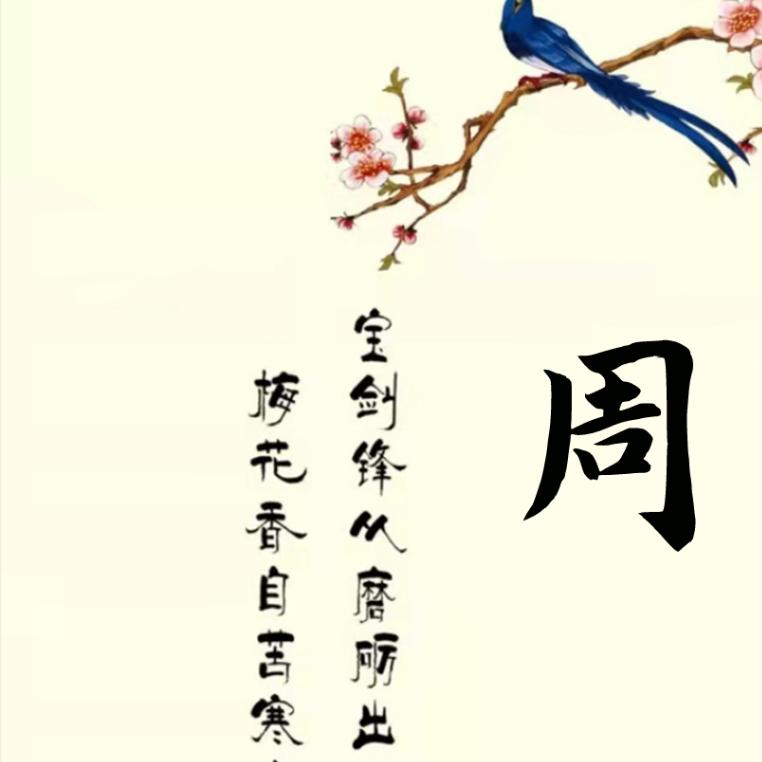 周
宝剑锋从磨砺出
梅花香自苦寒